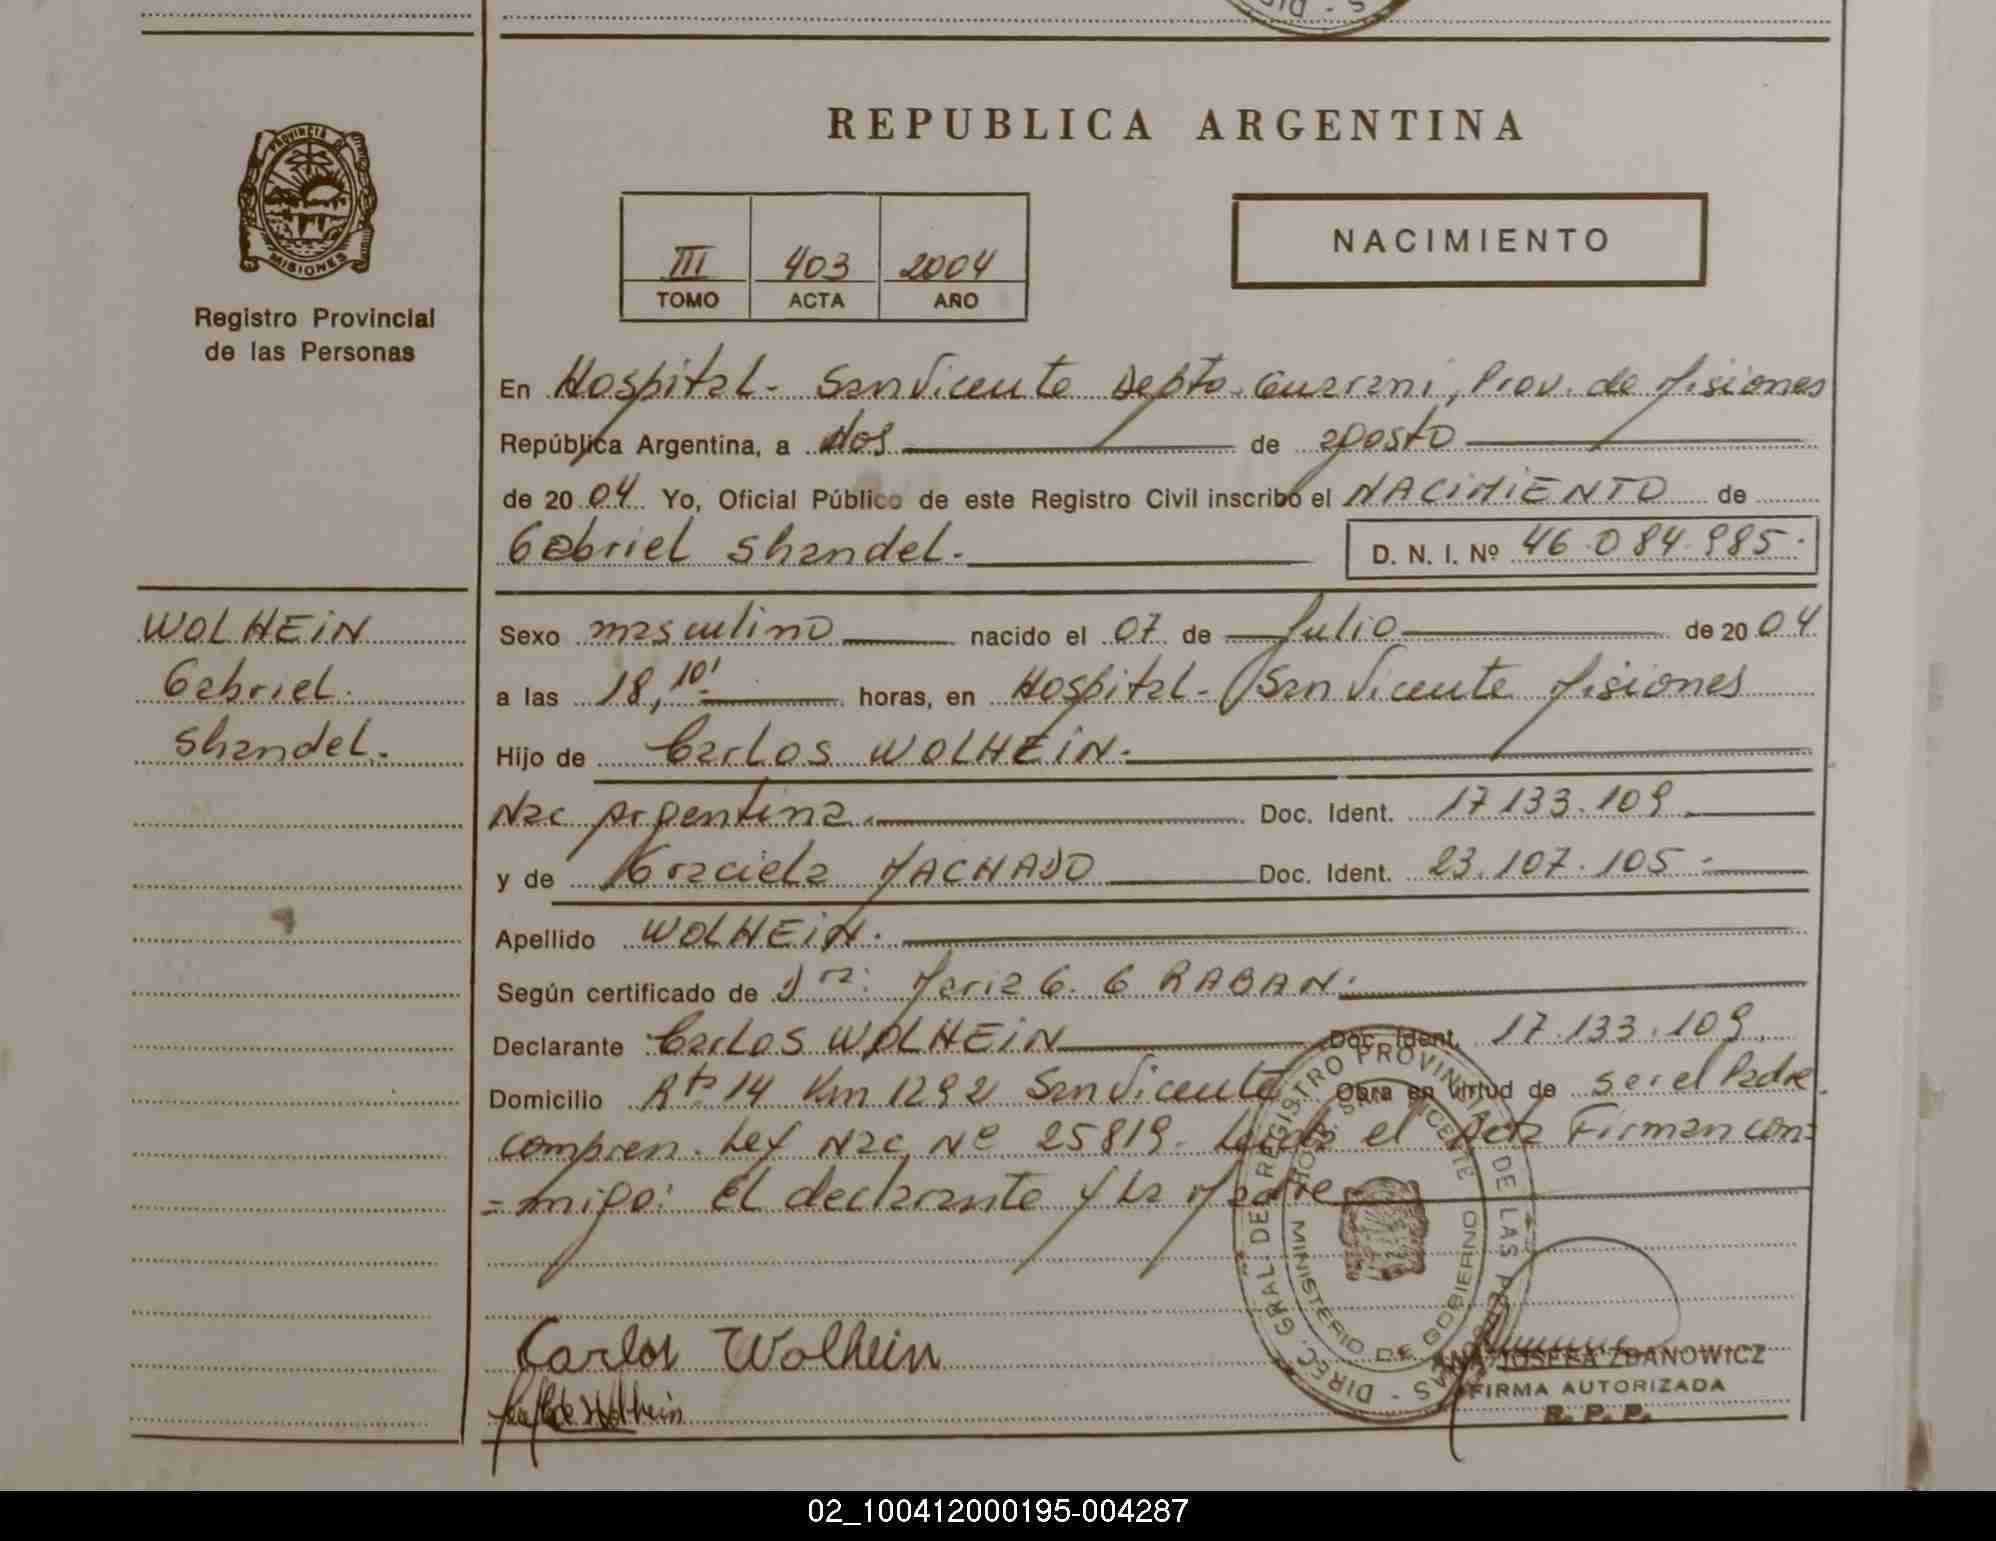 REPUBLICA ARGENTINA
PROVINCIA DE
MISIONES
Registro Provincial
de las Personas
III 403 2004
TOMO ACTA AÑO
NACIMIENTO
En Hospital - San Vicente Depto. Guarani, Prov. de Misiones
República Argentina, a dos de agosto
de 2004 Yo, Oficial Público de este Registro Civil inscribo el NACIMIENTO de
Gabriel Shandel. D. N. I. Nº 46.084.985.
WOLHEIN
Gabriel
Shandel.
Sexo masculino nacido el 07 de Julio de 2004
a las 18,10' horas, en Hospital - San Vicente Misiones
Hijo de Carlos WOLHEIN.
Nac Argentina. Doc. Ident. 17.133.109
y de Graciela MACHADO Doc. Ident. 23.107.105.
Apellido WOLHEIN.
Según certificado de Dra: Maria G. GRABAN.
Declarante Carlos WOLHEIN Doc. Ident. 17.133.109.
Domicilio Rta 14 Km 1292 San Vicente Obra en virtud de ser el Padre.
compren. Ley Nac. Nº 25819. Leida el Acta Firman con=
=migo: el declarante y la Madre
DIREC. GRAL. DE REGISTRO PROVINCIAL DE LAS PERSONAS
MINISTERIO DE GOBIERNO
Carlos Wolhein
Wolhein
ANA JOSEFA ZDANOWICZ
FIRMA AUTORIZADA
R. P. P.
02_100412000195-004287